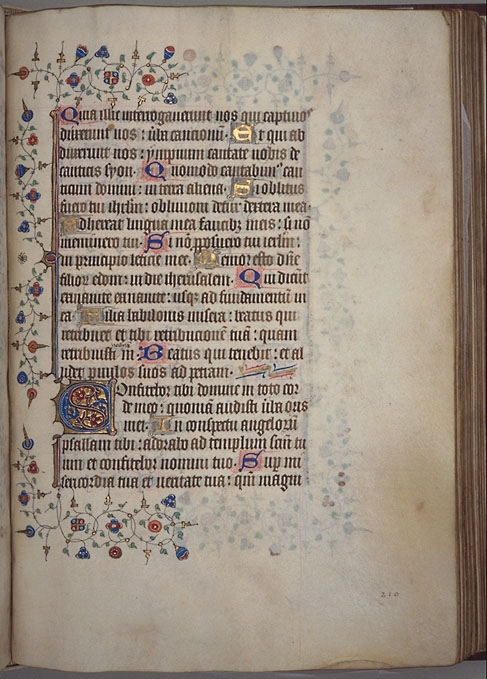 Quia illic interrogauerunt nos qui captiuos
duxerunt nos : uba cantionū. Et qui ab
duxerunt nos : ympnum cantate nobis de
canticis syon. Quomodo cantabim' can
ticum domini : in terra aliena. Si oblitus
fuero tui ihrlm : obliuioni detur dextera mea.
Adhereat lingua mea faucibz meis : si nō
meminero tui. Si nō proposuero tui ierlm :
in principio leticie mee. Memor esto dñe
filiorum edom : in die iherusalem. Qui dicunt
exinanite exinanite : usqz ad fundamentū in
ea. Filia babilonis misera : beatus qui
retribuet tibi retributionē tuā : quam
retribuisti nobis. Beatus qui tenebit : et al
lidet paruulos suos ad petram.
Confitebor tibi domine in toto cor
de meo : quoniā audisti uba oris
mei. In conspectu angelorū
psallam tibi : adorabo ad templum sanctū tu
um et confitebor nomini tuo. Super mi
sericordia tua et ueritate tua : qm̄ magni
210